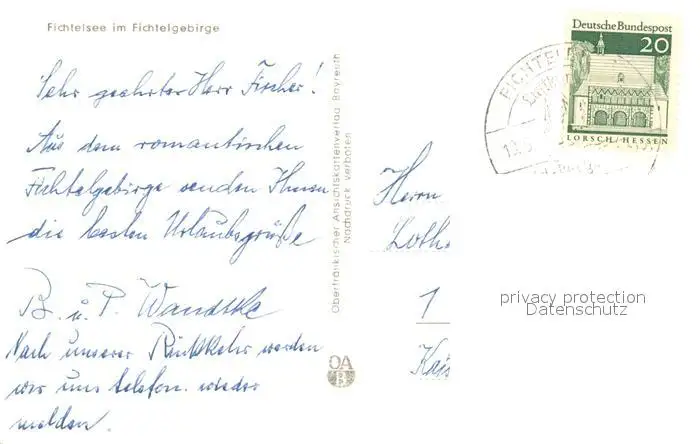 Fichtelsee im Fichtelgebirge
Sehr geehrter Herr Fischer!
Aus dem romantischen
Fichtelgebirge senden Ihnen
die besten Urlaubsgrüße
B. u. P. Wandtke
Nach unserer Rückkehr werden
wir uns telefon. wieder
melden.
Oberfränkischer Ansichtskartenverlag Bayreuth
Nachdruck verboten
OA
Herrn
Loth
1
Kais
privacy protection
Datenschutz
Deutsche Bundespost
20
LORSCH/HESSEN
FICHTEL